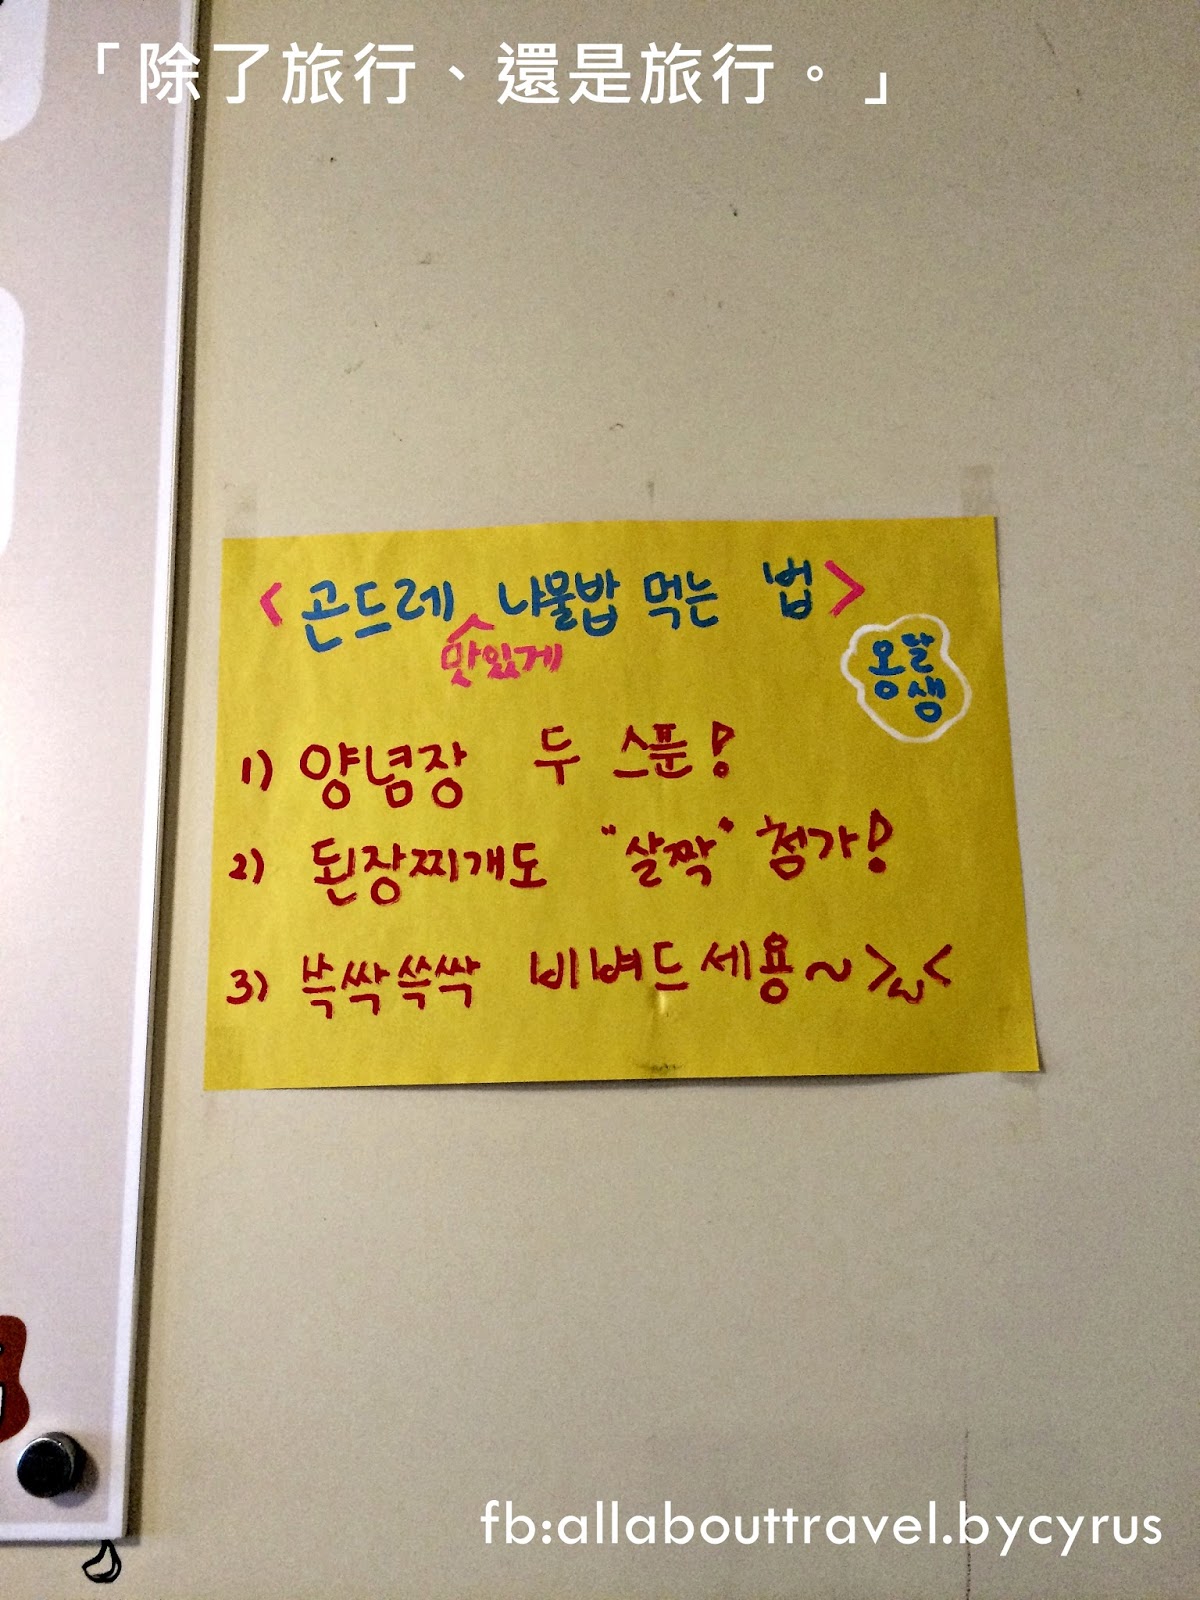 「除了旅行、還是旅行。」
<곤드레 나물밥 먹는 법>
맛있게
옹달
샘
1) 양념장 두 스푼!
2) 된장찌개도 "살짝" 첨가!
3) 쓱싹쓱싹 비벼드세용~ >ω<
fb:allabouttravel.bycyrus